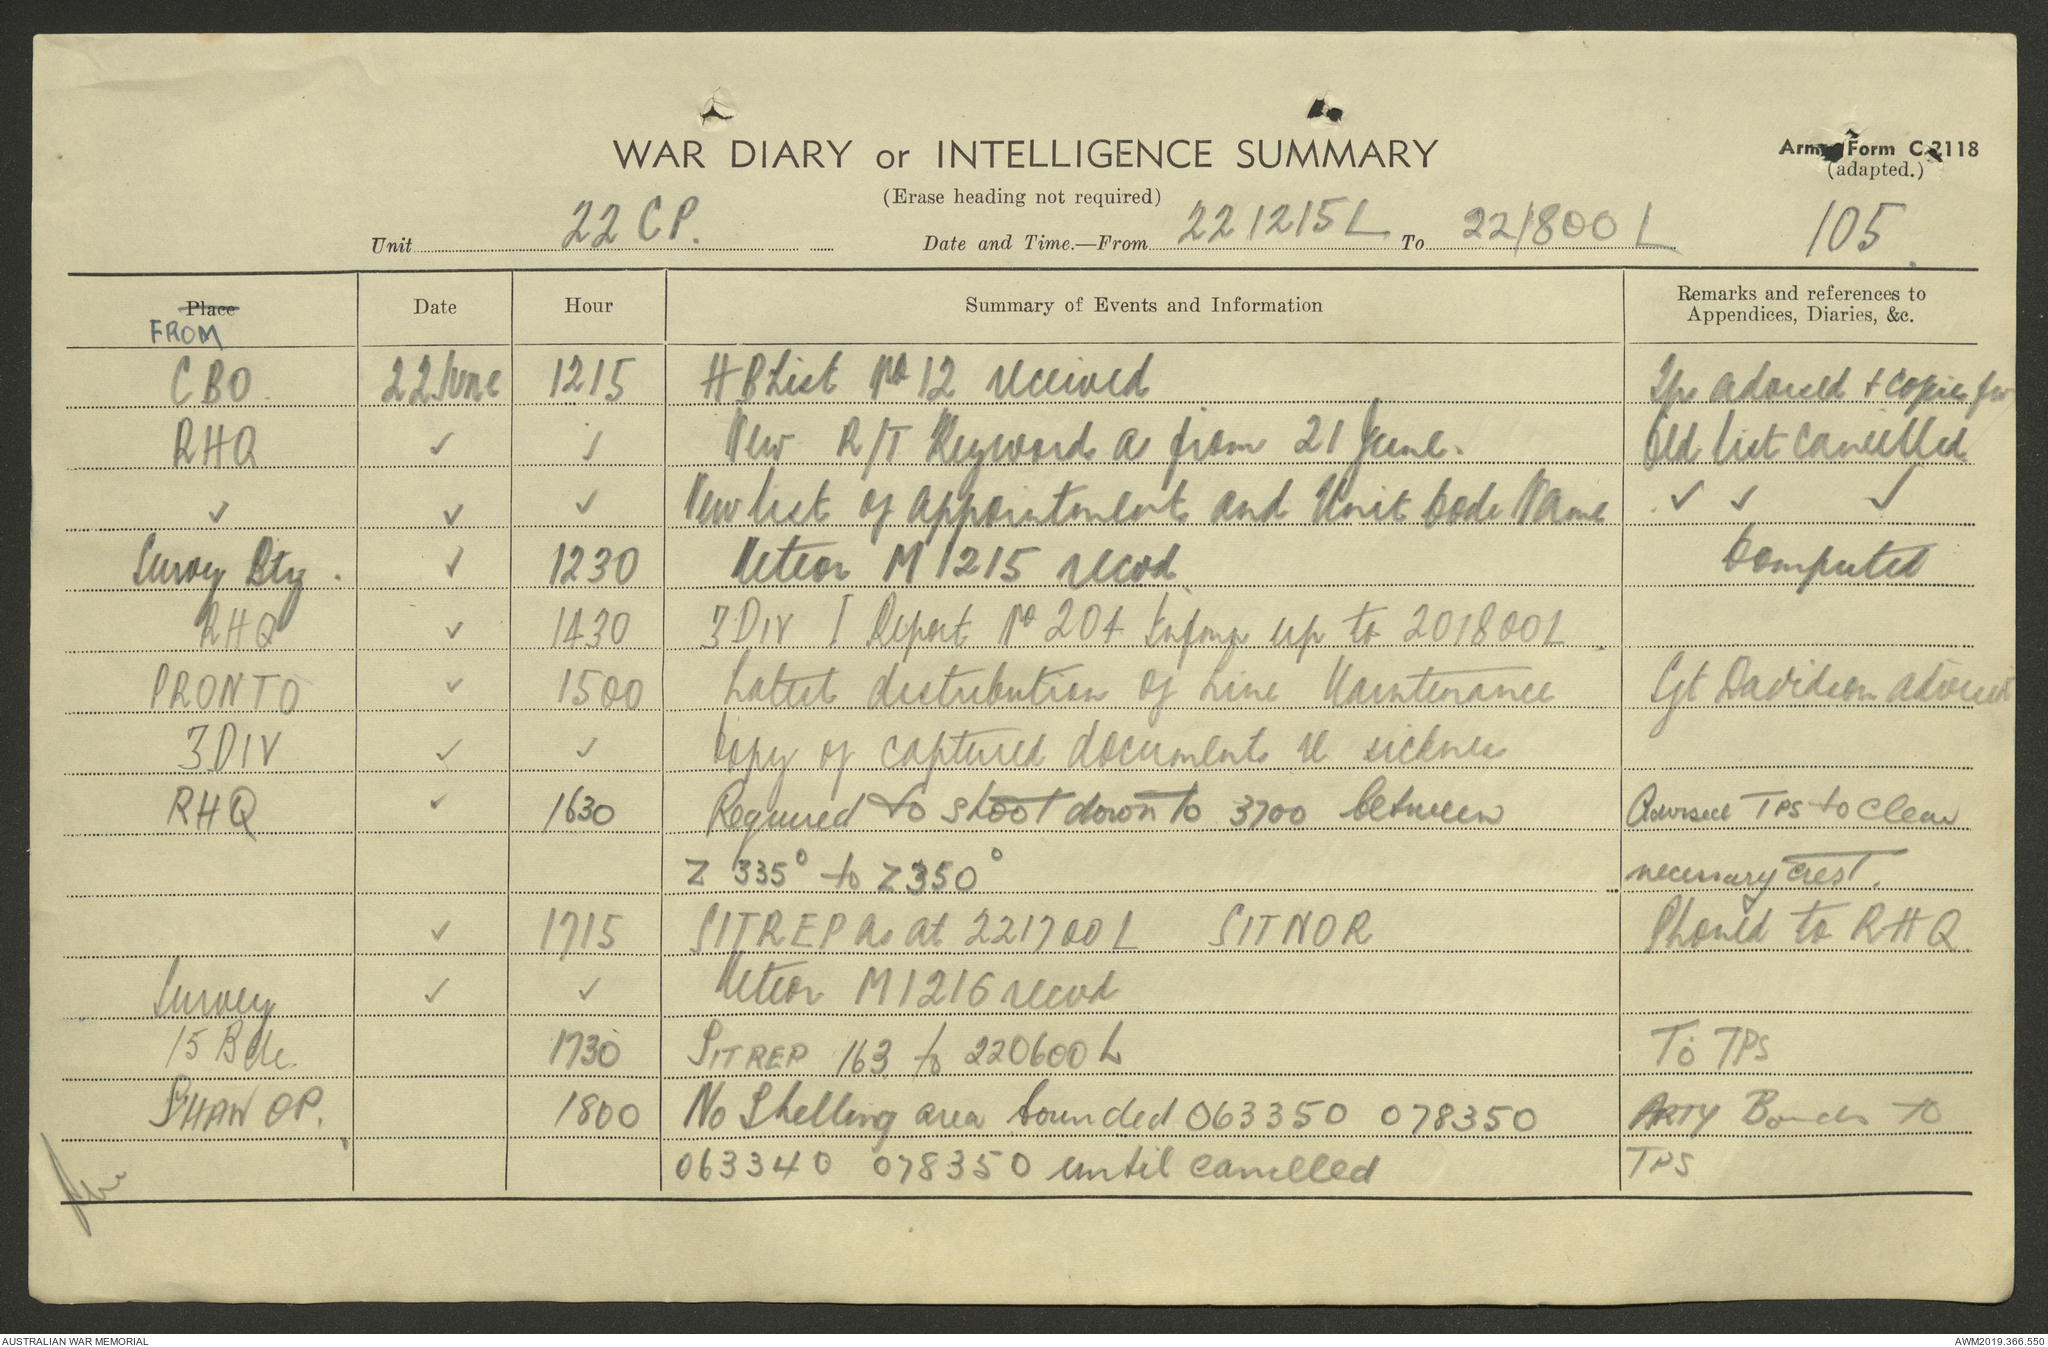 WAR DIARY or INTELLIGENCE SUMMARY
(Erase heading not required)
Army Form C.2118
(adapted.)
105
Unit 22 CP. Date and Time.—From 221215L To 221800L
Place Date Hour Summary of Events and Information Remarks and references to Appendices, Diaries, &c.
FROM
CBO 22 June 1215 HB List No 12 received Tps advised + copies
RHQ ✓ ✓ New R/T Keywords as from 21 June. Old list cancelled
✓ ✓ ✓ New list of appointments and Unit Code Name ✓ ✓ ✓
Survey Bty. ✓ 1230 Meteor M1215 recvd Computed
RHQ ✓ 1430 3 Div I Report No 204 Inform up to 201800L
PRONTO ✓ 1500 Latest distribution of Line Maintenance Sgt Davidson advised
3 DIV ✓ ✓ Copy of captured documents re sickness
RHQ ✓ 1630 Required to shoot down to 3700 between Advised TPS to clear
Z 335° to Z350° necessary crest.
✓ 1715 SITREP as at 221700L SITNOR Phoned to RHQ
Survey ✓ ✓ Meteor M1216 recvd
15 Bde. 1730 SITREP 163 to 220600L To TPS
SHAW OP. 1800 No Shelling area bounded 063350 078350 ARTY Boards to
063340 078350 until cancelled TPS
AUSTRALIAN WAR MEMORIAL
AWM2019.366.550